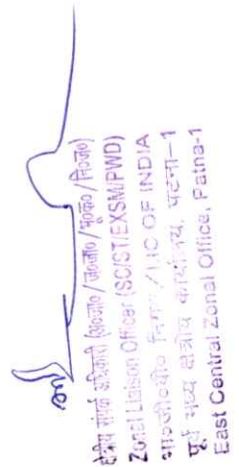 क्षेत्रीय संपर्क अधिकारी (अ०जा० / ज०जा० / भू०सै० / नि०ज०)
Zonal Liaison Officer (SC/ST/EXSM/PWD)
भा०जी०बी० निगम / LIC OF INDIA
पूर्व मध्य क्षेत्रीय कार्यालय, पटना-1
East Central Zonal Office, Patna-1